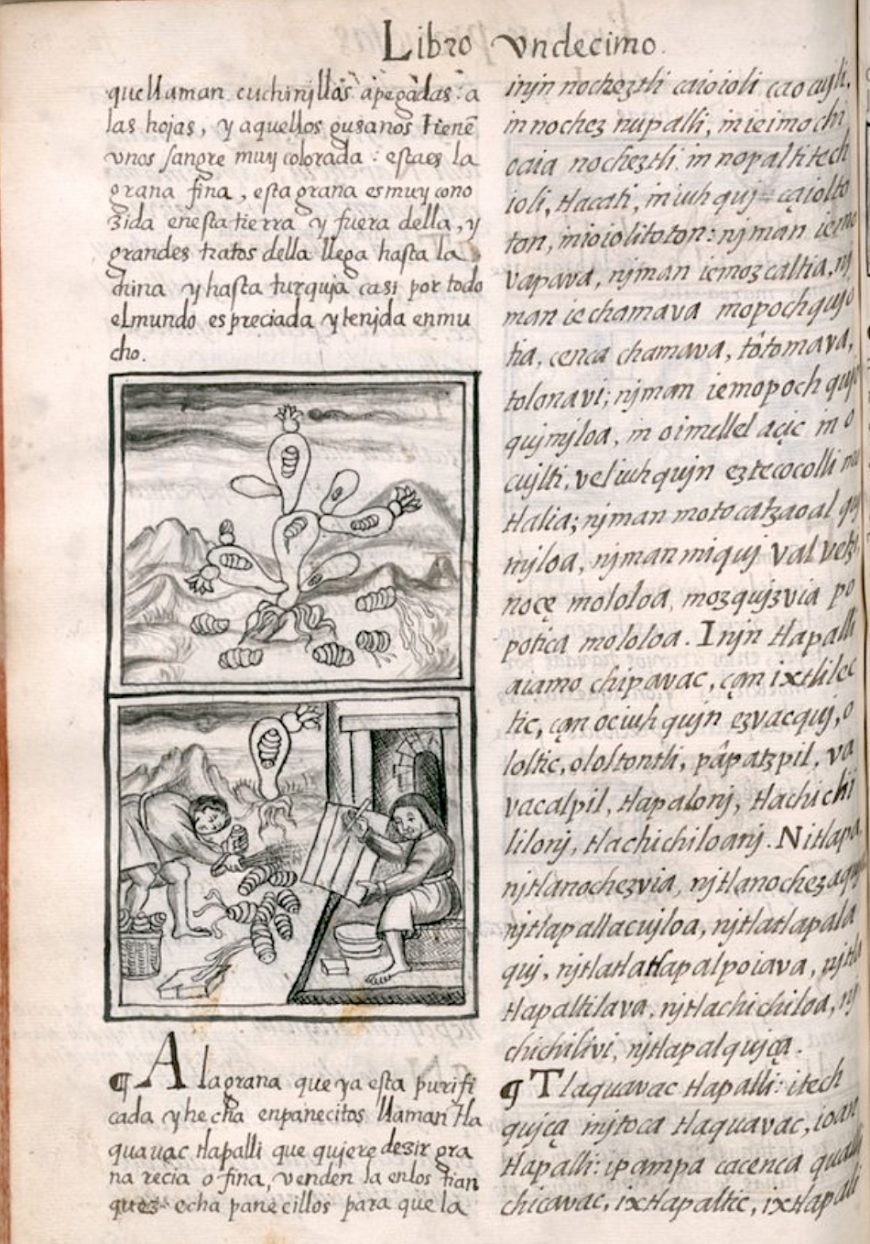 Libro vndecimo.
que llaman cuchinjllas apegadas: a
las hojas, y aquellos gusanos tienē
vnos sangre muy colorada: esta es la
grana fina, esta grana es muy cono
zida en esta tierra y fuera della, y
grandes tratos della llega hasta la
china y hasta turquja casi por todo
el mundo es preciada y tenjda en mu
cho.
¶ A la grana que ya esta purifi
cada y hecha en panecitos llaman tla
quauac tlapalli que quiere dezir gra
na recia o fina, venden la en los tian
quez echa panecillos para que la
injn nocheztli caioioli, ca ocujli,
in nochez nupalli, in ie imochi
ocaia nocheztli in nopaltitech
ioli, tlacati, in iuh quj caiolto
ton, in ioiolitoton: njman ie mo
vapava, njman ie mozcaltia, nj
man ie chamava mopochqujo
tia, cenca chamava, tôtomava,
tolonavi; njman ie mopoch qujo
qujmjloa, in oimellel açic in o
cujlti, vel iuh qujn eztecocolli mo
tlalia; njman motocatzaoal quj
mjloa, njman miquj valvetzi,
noçe mololoa, mozqujzvia po
potica mololoa. Injn tlapalli
aiamo chipavac, çan ixtlilec
tic, çan oc iuh qujn ezvacquj, o
loltic, ololtontli, pâpatzpil, va
vacalpil, tlapalonj, tlachichi
lilonj, tlachichiloanj. Nitlapa,
njtlanochezvia, njtlanochezaquja
njtlapallacujloa, njtlatlapala
quj, njtlatlatlapalpoiava, njtla
tlapaltilava, njtlachichiloa, nj
chichilivi, njtlapalqujça.
¶ Tlaquavac tlapalli: itech
qujça injtoca tlaquavac, ioan
tlapalli: ipampa ca cenca qualli
chicavac, ixtlapaltic, ixtlapalli